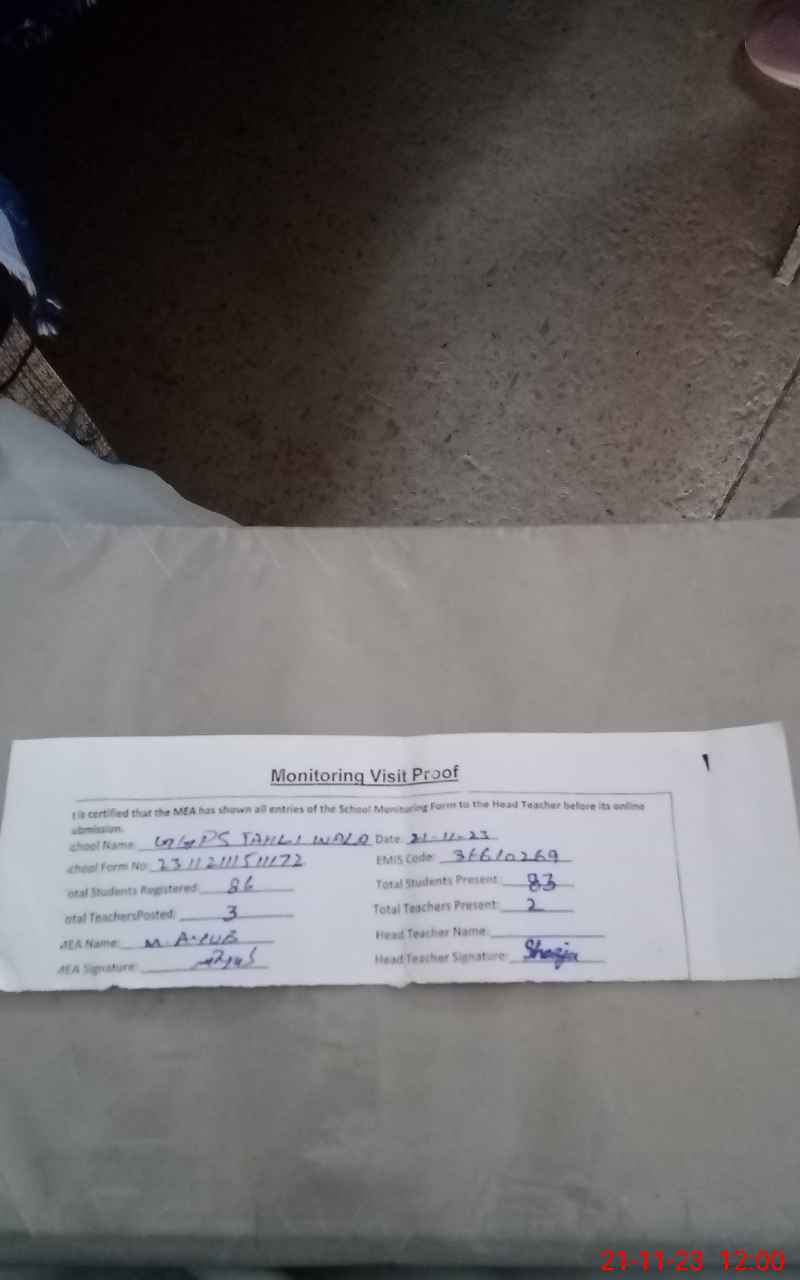 Monitoring Visit Proof
t is certified that the MEA has shown all entries of the School Monitoring Form to the Head Teacher before its online
ubmission.
chool Name: GGPS TAHLI WALA Date: 21-11-23
chool Form No: 23112111511172 EMIS Code: 36610269
otal Students Registered: 86 Total Students Present: 83
otal TeachersPosted: 3 Total Teachers Present: 2
MEA Name: M. AYUB Head Teacher Name:
MEA Signature: Head Teacher Signature: Shazia
21-11-23 12:00